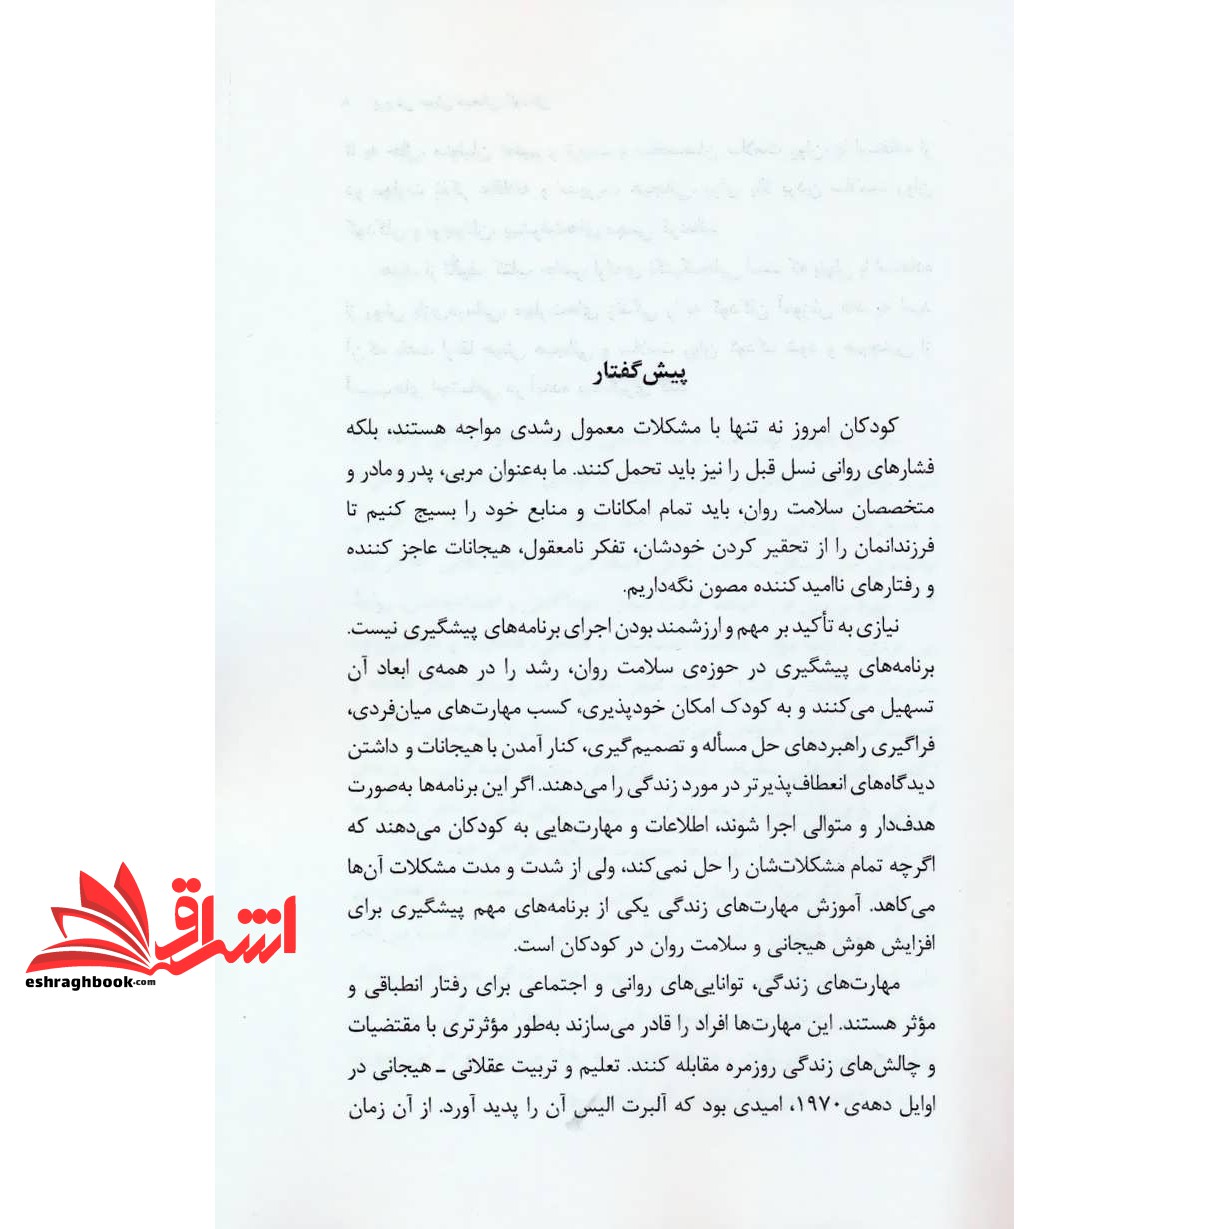 پیش‌گفتار
کودکان امروز نه تنها با مشکلات معمول رشدی مواجه هستند، بلکه
فشارهای روانی نسل قبل را نیز باید تحمل کنند. ما به‌عنوان مربی، پدر و مادر و
متخصصان سلامت روان، باید تمام امکانات و منابع خود را بسیج کنیم تا
فرزندانمان را از تحقیر کردن خودشان، تفکر نامعقول، هیجانات عاجز کننده
و رفتارهای ناامید کننده مصون نگه‌داریم.
نیازی به تأکید بر مهم و ارزشمند بودن اجرای برنامه‌های پیشگیری نیست.
برنامه‌های پیشگیری در حوزه‌ی سلامت روان، رشد را در همه‌ی ابعاد آن
تسهیل می‌کنند و به کودک امکان خودپذیری، کسب مهارت‌های میان‌فردی،
فراگیری راهبردهای حل مسأله و تصمیم‌گیری، کنار آمدن با هیجانات و داشتن
دیدگاه‌های انعطاف‌پذیرتر در مورد زندگی را می‌دهند. اگر این برنامه‌ها به‌صورت
هدف‌دار و متوالی اجرا شوند، اطلاعات و مهارت‌هایی به کودکان می‌دهند که
اگرچه تمام مشکلات‌شان را حل نمی‌کند، ولی از شدت و مدت مشکلات آن‌ها
می‌کاهد. آموزش مهارت‌های زندگی یکی از برنامه‌های مهم پیشگیری برای
افزایش هوش هیجانی و سلامت روان در کودکان است.
مهارت‌های زندگی، توانایی‌های روانی و اجتماعی برای رفتار انطباقی و
مؤثر هستند. این مهارت‌ها افراد را قادر می‌سازند به‌طور مؤثرتری با مقتضیات
و چالش‌های زندگی روزمره مقابله کنند. تعلیم و تربیت عقلانی ـ هیجانی در
اوایل دهه‌ی ۱۹۷۰، امیدی بود که آلبرت الیس آن را پدید آورد. از آن زمان
اشراق
eshraghbook.com